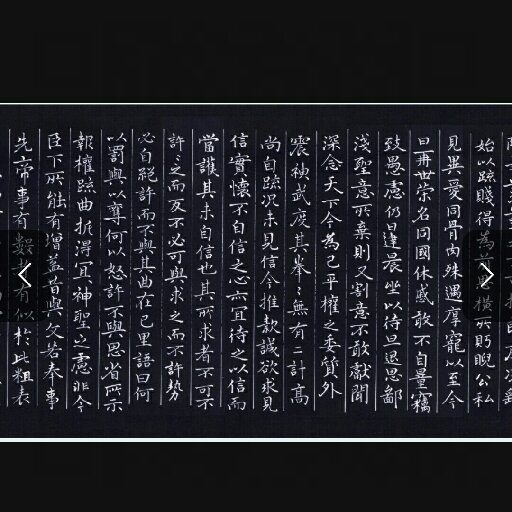 始以疏賤得為前恩橫所眄睨公私
見異愛同骨肉殊遇厚寵以至今
日再世榮名同國休慼敢不自量竊
致愚慮仍日達晨坐以待旦退思鄙
淺聖意所棄則又割意不敢獻聞
深念天下今為已平權之委質外
震神武度其拳拳無有二計高
尚自疏況未見信今推款誠欲求見
信實懷不自信之心亦宜待之以信而
當護其未自信也其所求者不可不
許許之而反不必可與求之而不許勢
必自絕許而不與其曲在己里語曰何
以罰與以奪何以怒許不與思省所示
報權疏曲折得宜神聖之慮非今
臣下所能有增益昔與文若奉事
先帝事有數者有似於此粗表